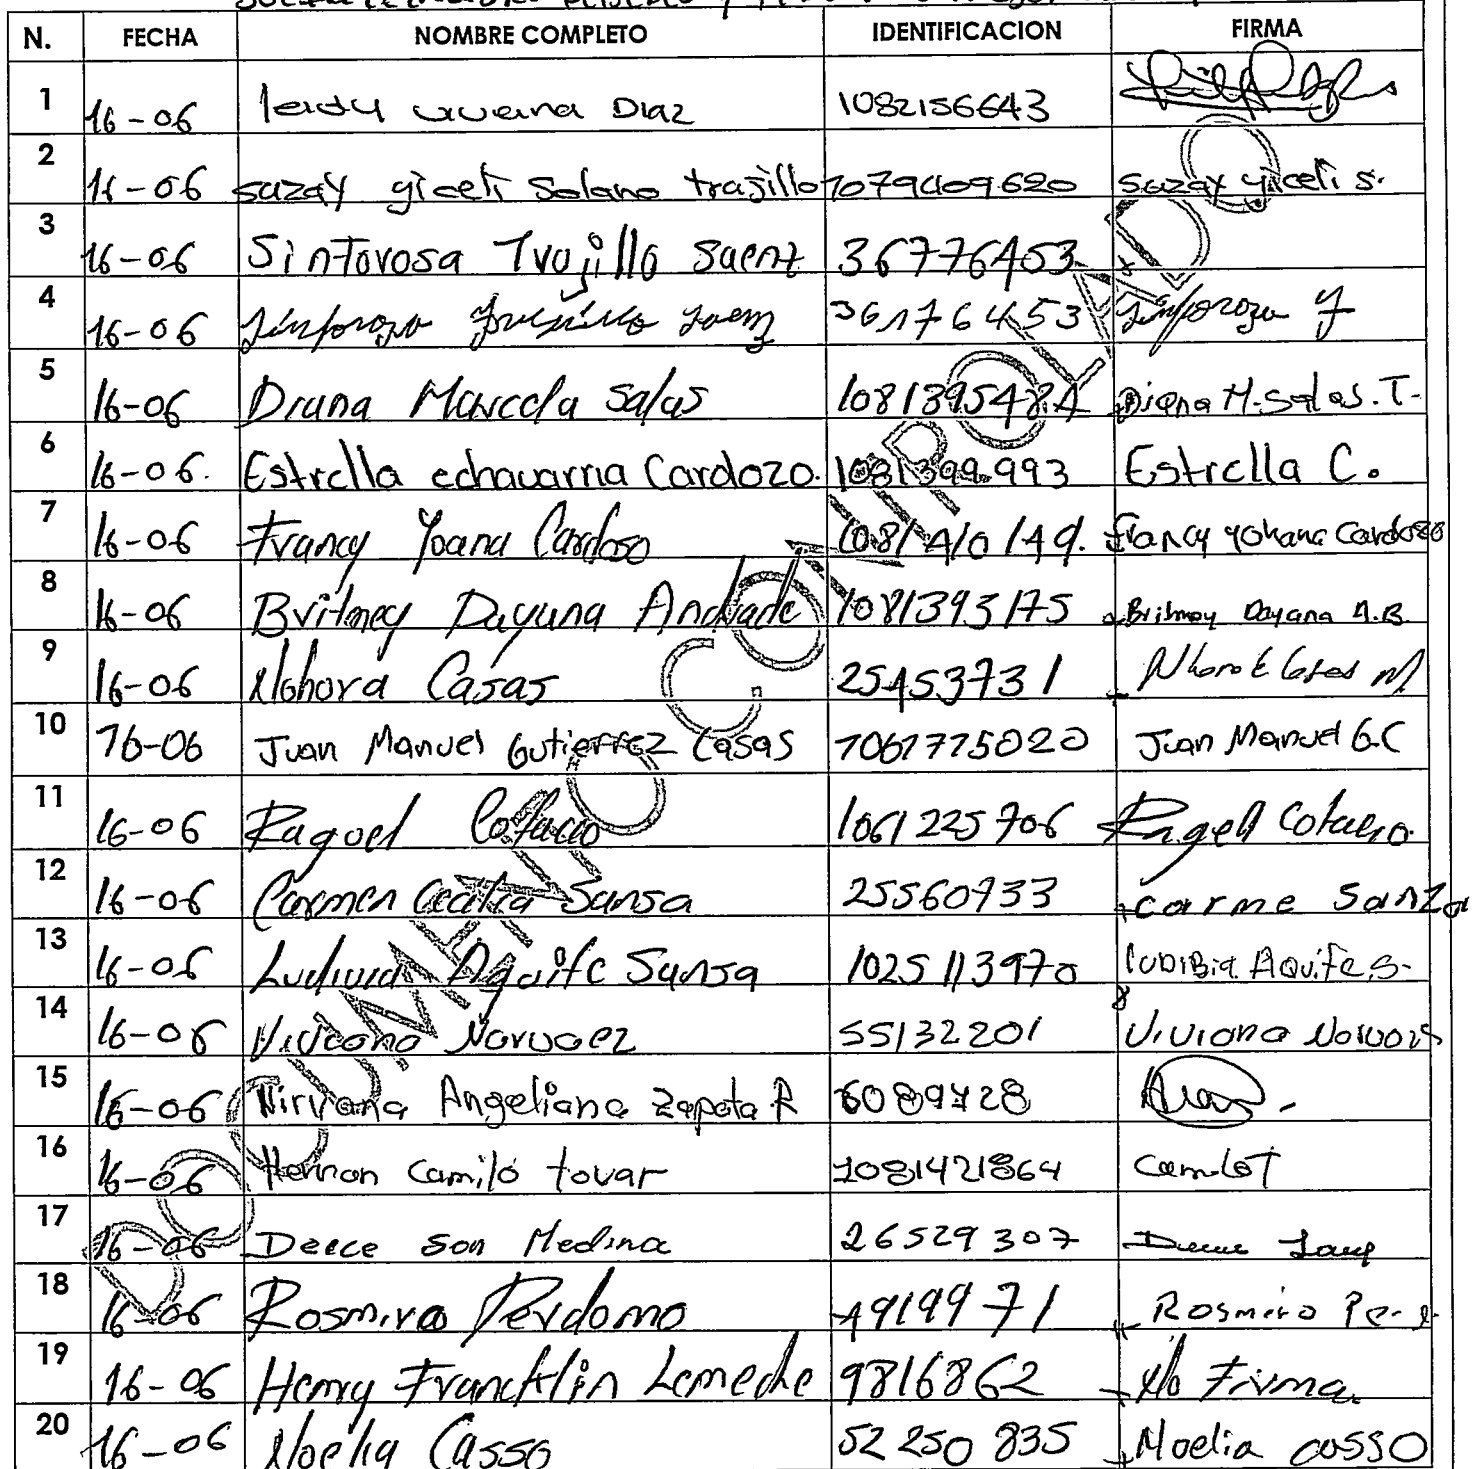 N. FECHA NOMBRE COMPLETO IDENTIFICACION FIRMA
1 16-06 Diaz 1082156643
2 16-06 sazay giceli Solano trujillo 1079409620 sazay yiceli s.
3 16-06 Sinforosa Trujillo Saenz 36776453
4 16-06 Sinforoza Trujillo Saenz 36176453 Sinforoza T
5 16-06 Diana Marcela Salas 1081395484 Diana M. Salas. T.
6 16-06. Estrella echavarria Cardozo. 1081399.993 Estrella C.
7 16-06 Francy Yoana Cardoso 1081410149. Francy Yohana Cardoso
8 16-06 Britney Dayana Andrade 1081393175 Britney Dayana A.B.
9 16-06 Nohora Casas 25453731
10 16-06 Juan Manuel Gutierrez Casas 1061775020 Juan Manuel G.C
11 16-06 Raquel 1061225706
12 16-06 Carmen Cecilia Sansa 25560733 carme Sanza
13 16-06 Ludivia Aquite Sansa 1025113970 lubibia Aquite.S.
14 16-06 Viviana Narvaez 55132201 Viviana Narvaez
15 16-06 Nirvana Angeliana Zapata R 6089728
16 16-06 Hernan Camilo tovar 1081421864 CamiloT
17 16-06 Deece son Medina 26529307
18 16-06 Rosmira Perdomo 4919971 Rosmiro
19 16-06 Henry Francklin Lemeche 9816862 No Firma
20 16-06 Noelia Casso 52250835 Noelia casso
DOCUMENTO CONTROLADO